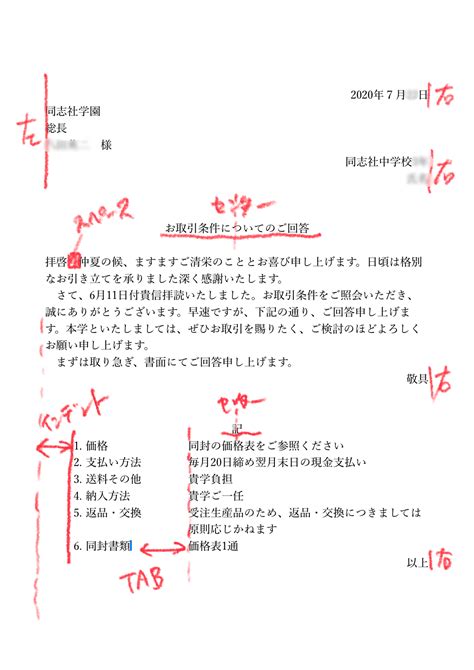 2020年７月 日 右
同志社学園
総長
様
左
同志社中学校
右
センター
スペース
お取引条件についてのご回答
拝啓 仲夏の候、ますますご清栄のこととお喜び申し上げます。日頃は格別
なお引き立てを承りました深く感謝いたします。
さて、6月11日付貴信拝読いたしました。お取引条件をご照会いただき、
誠にありがとうございます。早速ですが、下記の通り、ご回答申し上げま
す。本学といたしましては、ぜひお取引を賜りたく、ご検討のほどよろしく
お願い申し上げます。
まずは取り急ぎ、書面にてご回答申し上げます。
敬具 右
インデント
センター
記
1. 価格 同封の価格表をご参照ください
2. 支払い方法 毎月20日締め翌月末日の現金支払い
3. 送料その他 貴学負担
4. 納入方法 貴学ご一任
5. 返品・交換 受注生産品のため、返品・交換につきましては
原則応じかねます
6. 同封書類 価格表1通
TAB
以上 右